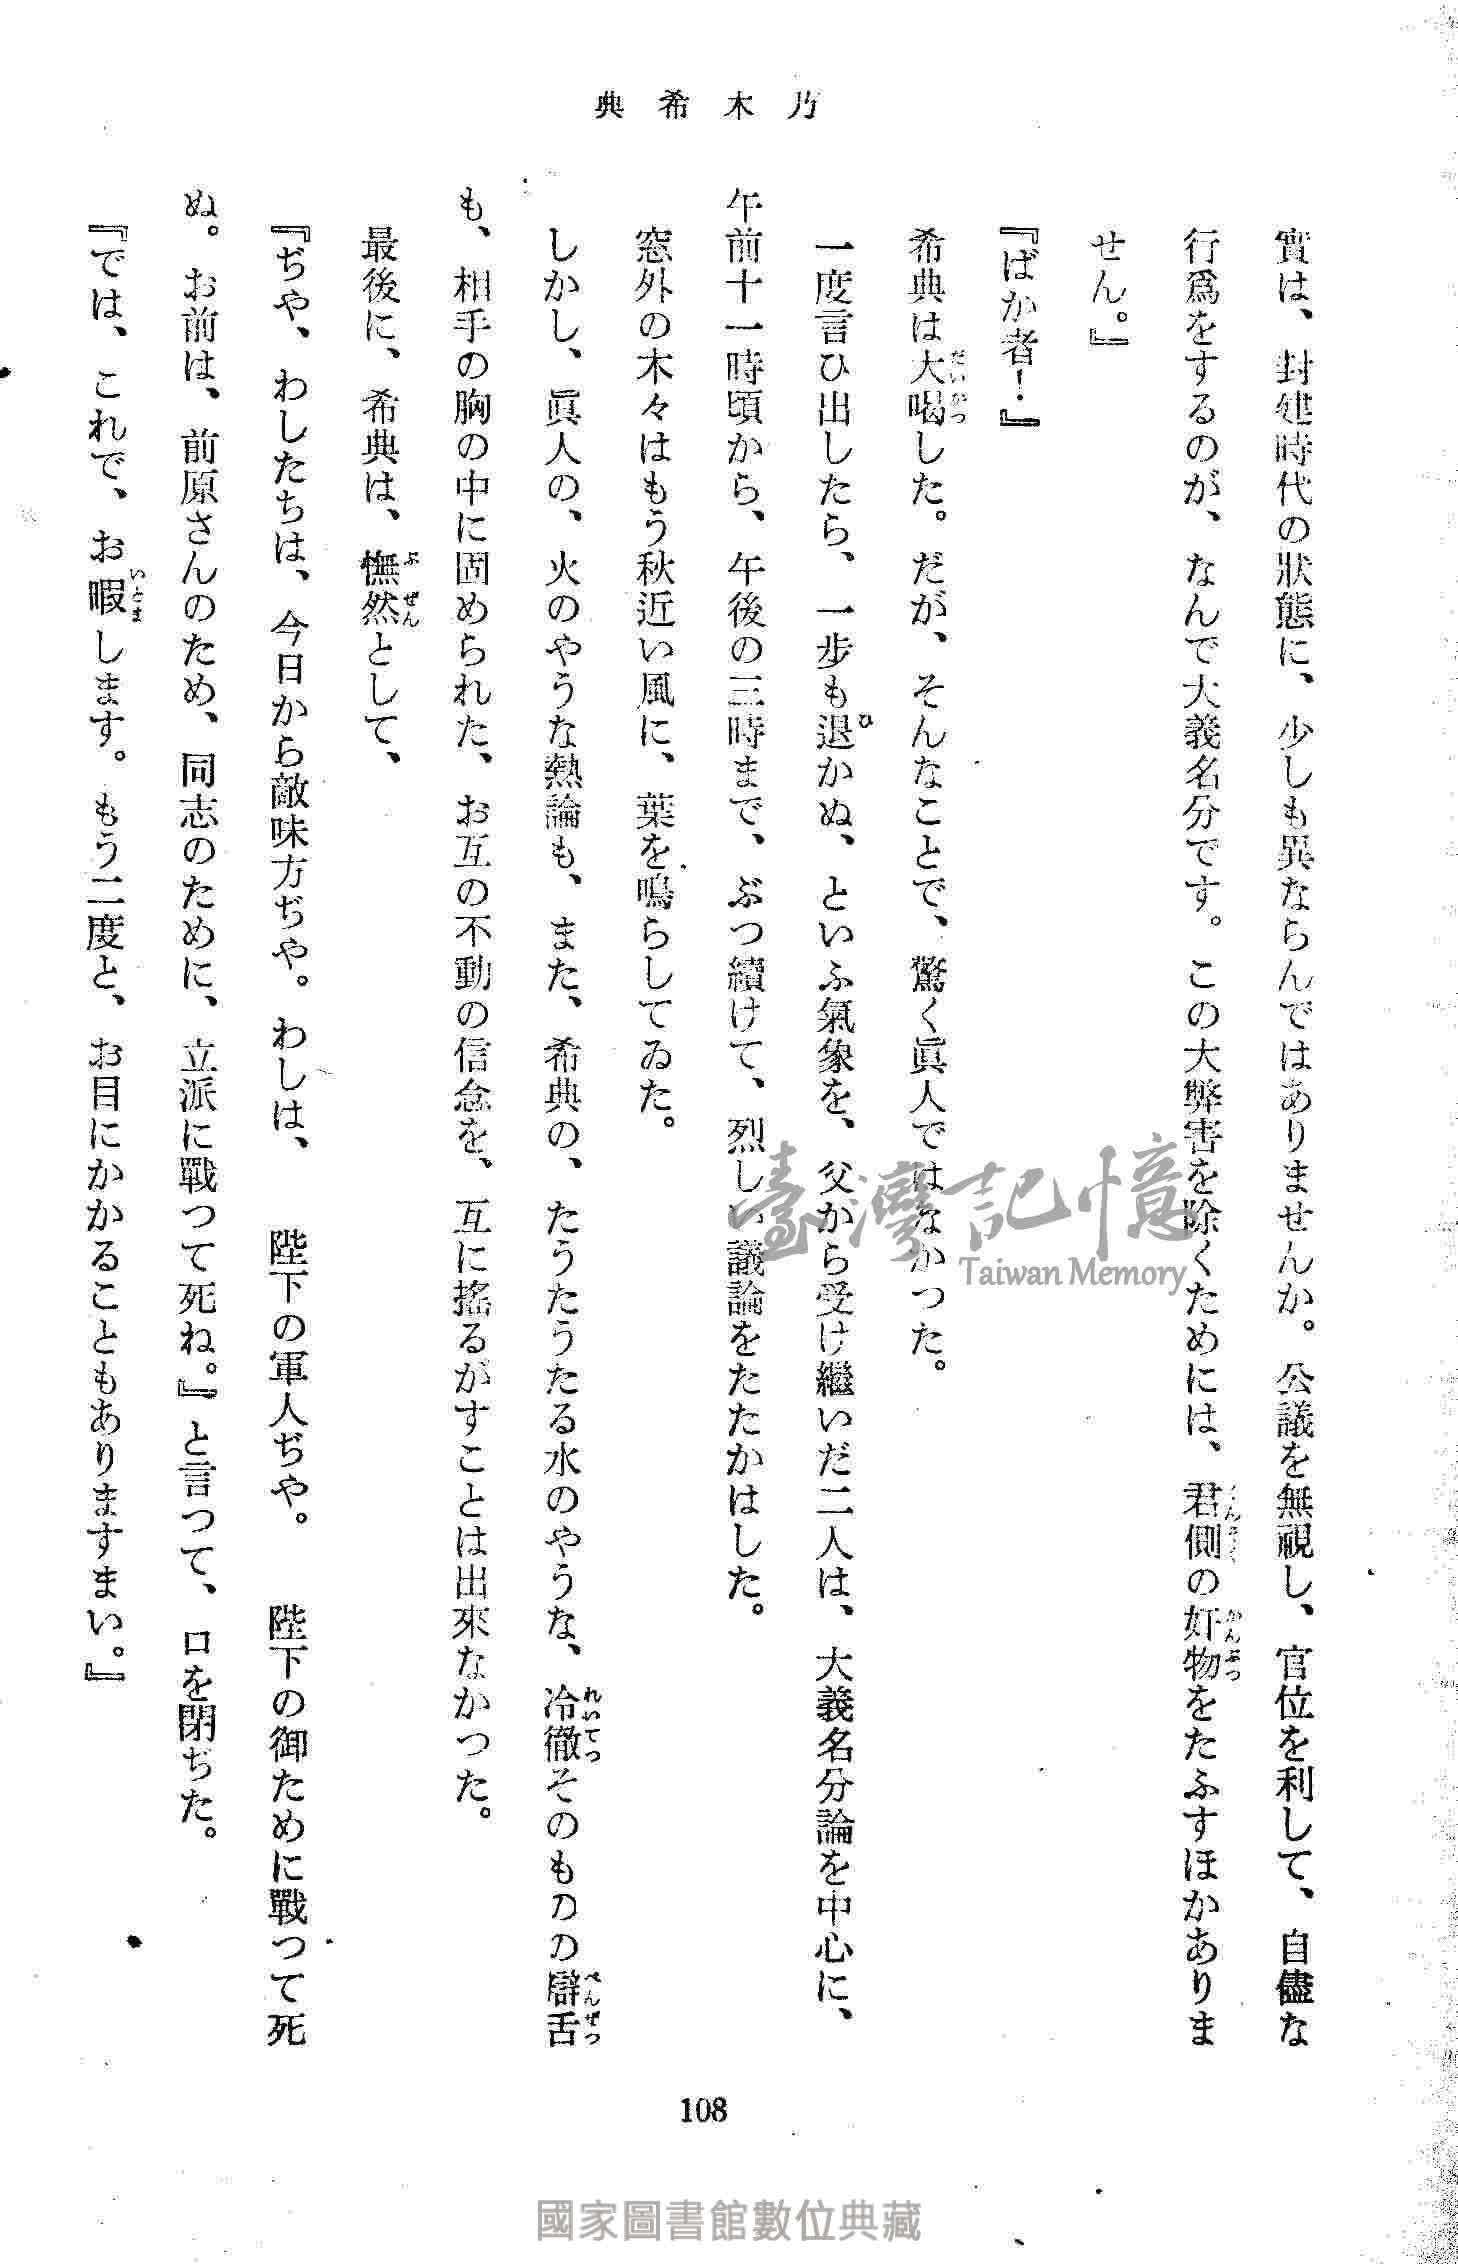 乃木希典
實は、封建時代の狀態に、少しも異ならんではありませんか。公議を無視し、官位を利して、自儘な
行爲をするのが、なんで大義名分です。この大弊害を除くためには、君側の奸物をたふすほかありま
せん。』
『ばか者！』
希典は大喝した。だが、そんなことで、驚く眞人ではなかつた。
一度言ひ出したら、一步も退かぬ、といふ氣象を、父から受け繼いだ二人は、大義名分論を中心に、
午前十一時頃から、午後の三時まで、ぶつ續けて、烈しい議論をたたかはした。
窓外の木々はもう秋近い風に、葉を鳴らしてゐた。
しかし、眞人の、火のやうな熱論も、また、希典の、たうたうたる水のやうな、冷徹そのものの辯舌
も、相手の胸の中に固められた、お互の不動の信念を、互に搖るがすことは出來なかつた。
最後に、希典は、憮然として、
『ぢや、わしたちは、今日から敵味方ぢや。わしは、　陛下の軍人ぢや。　陛下の御ために戰つて死
ぬ。お前は、前原さんのため、同志のために、立派に戰つて死ね。』と言つて、口を閉ぢた。
『では、これで、お暇します。もう二度と、お目にかかることもありますまい。』
108
臺灣記憶
Taiwan Memory
國家圖書館數位典藏